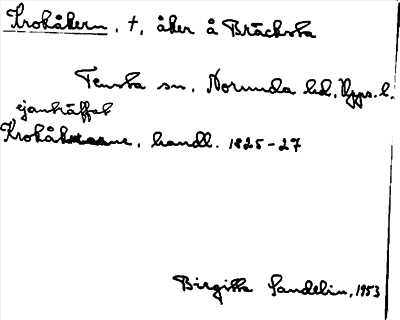 Krokåkern, †, åker å Bräcksta
Tensta sn, Norunda hd, Upps. l.
ej anträffat
Krokåkrarne, handl. 1825-27
Birgitta Sandelin, 1953